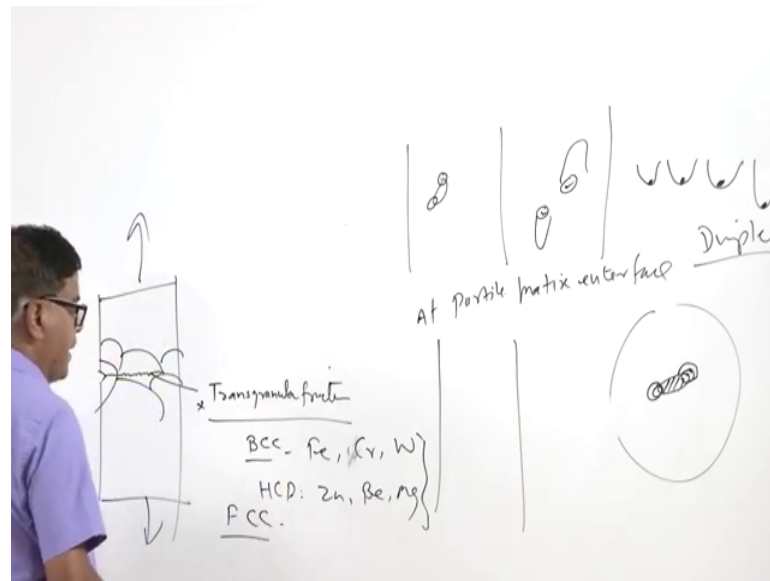 Dimple
At partile matix enterface
* Transgranula fructn
BCC - Fe, Cr, W
HCD: Zn, Be, Mg
FCC.